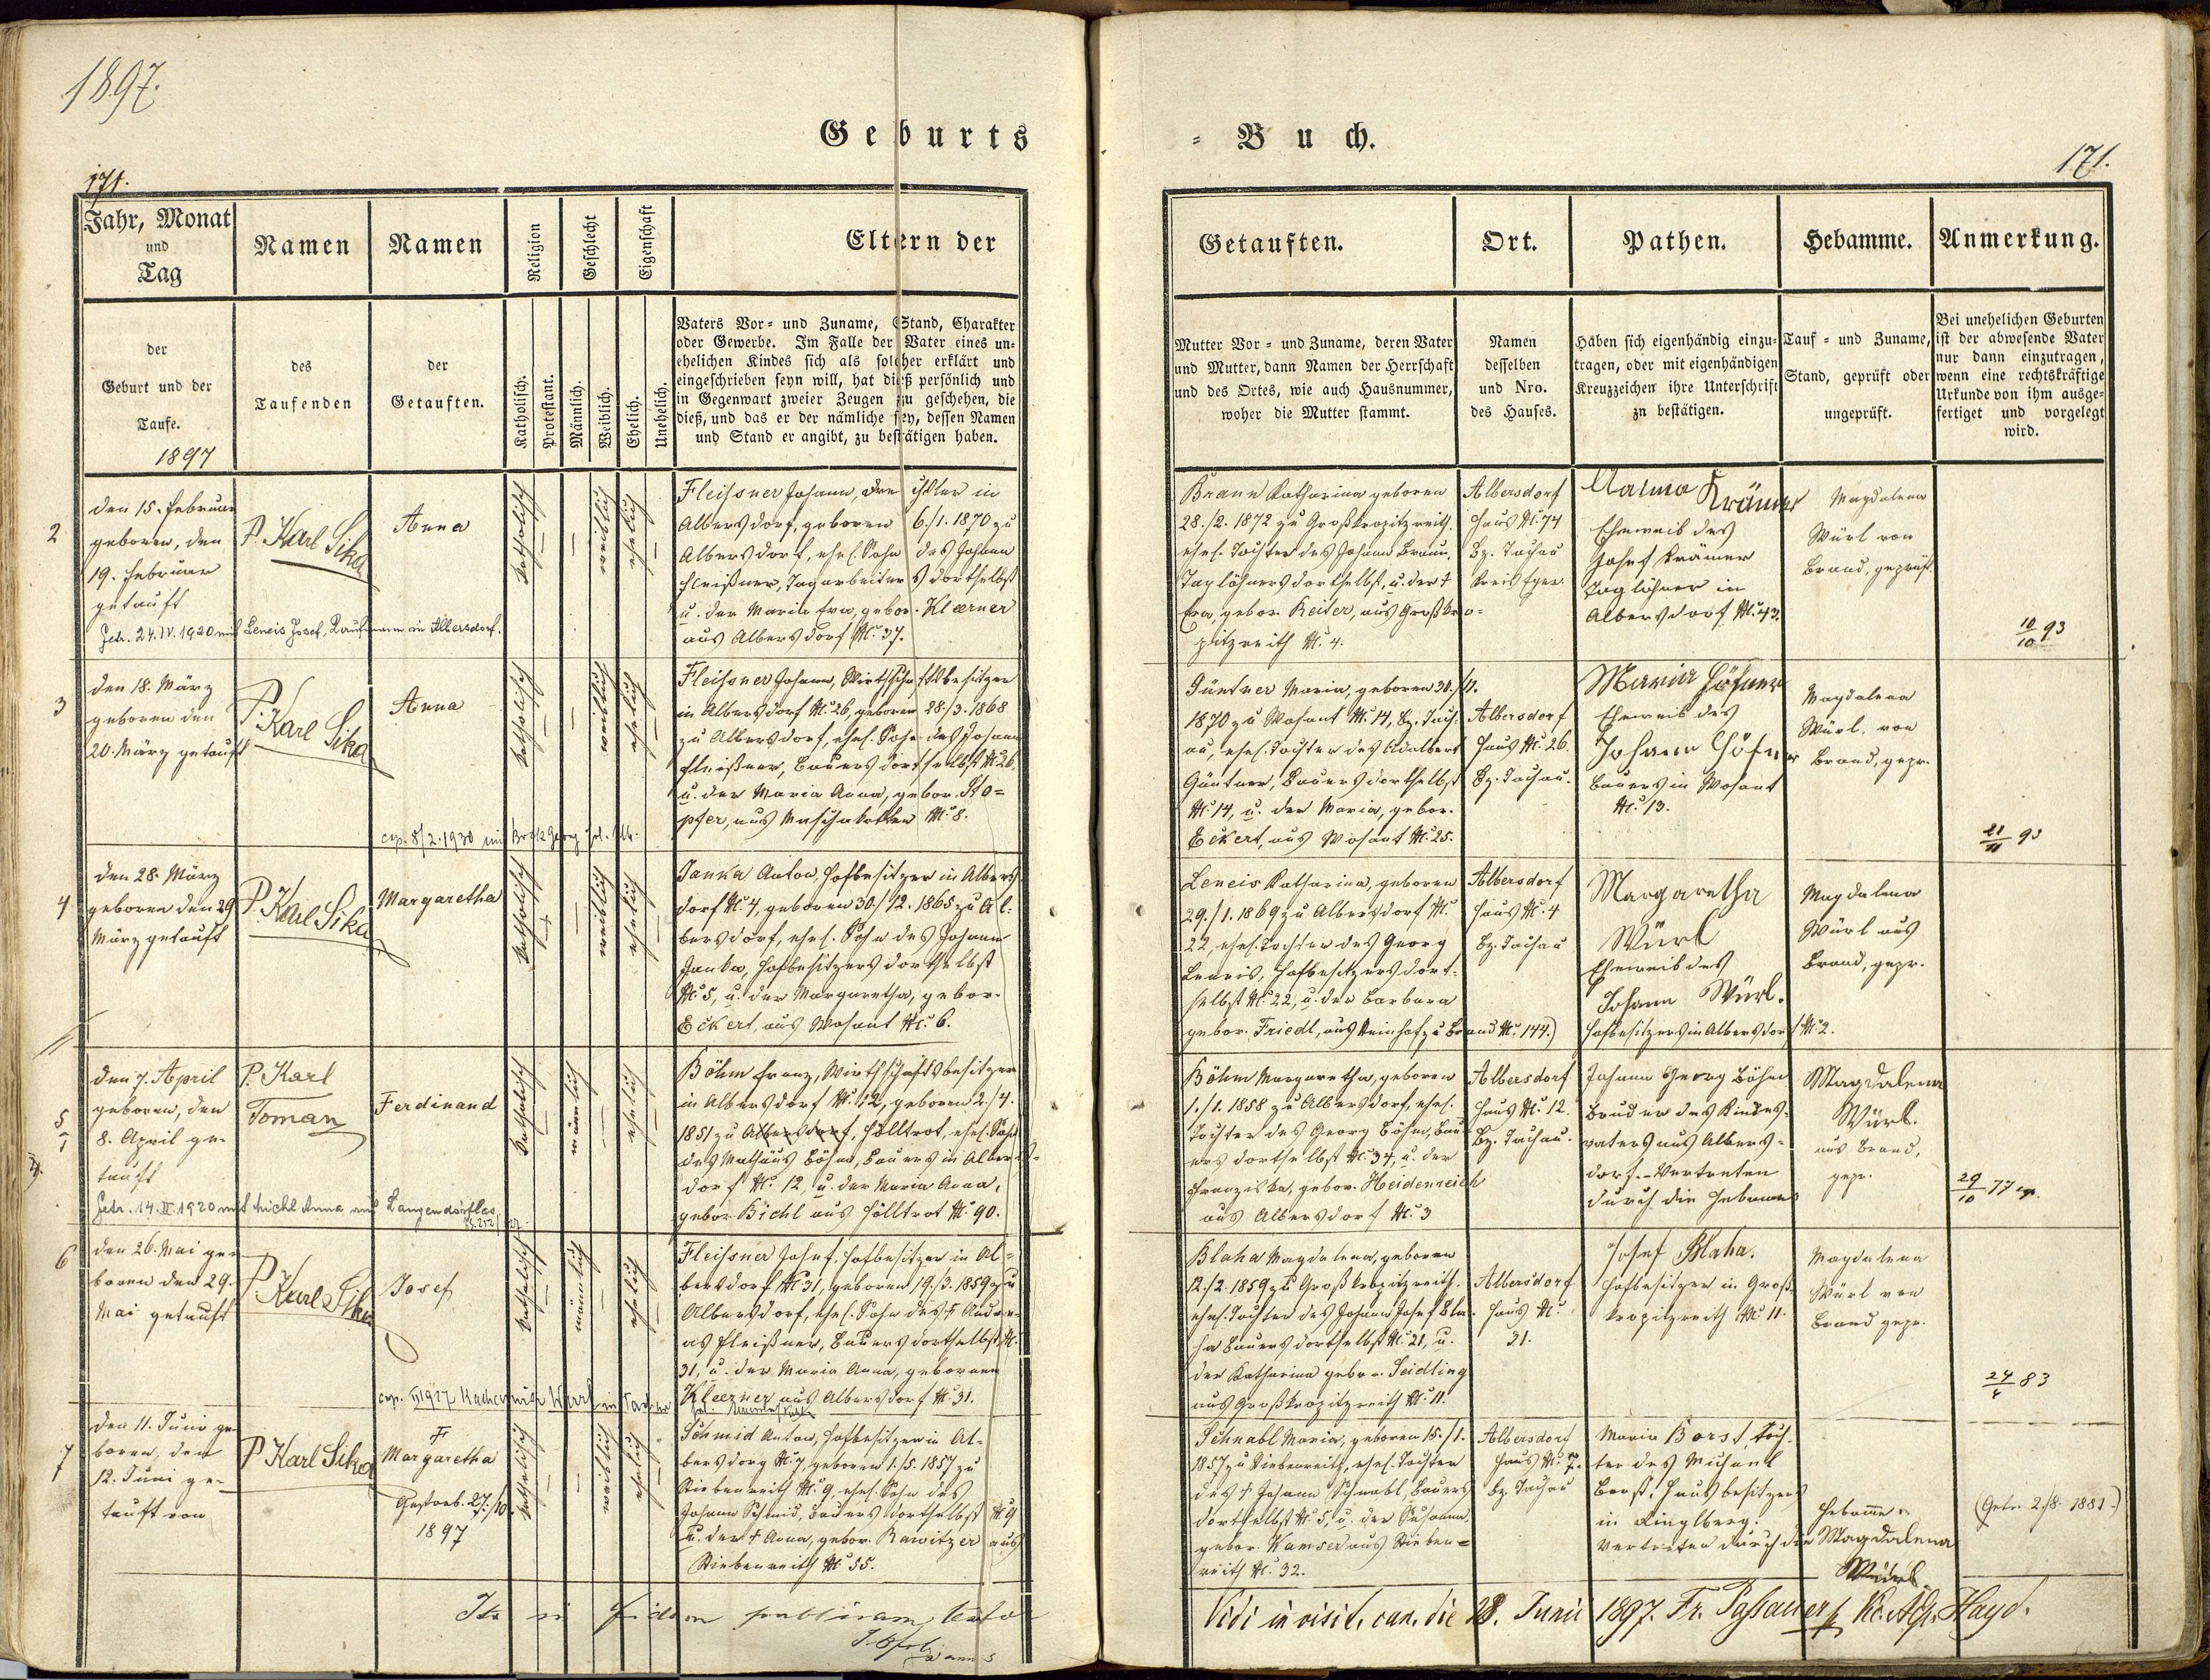 1897.
Geburts
171.
Jahr, Monat
und
Tag
der
Geburt und der
Taufe.
1897
Namen
des
Taufenden
Namen
der
Getauften.
Religion
Katholisch.
Protestant.
Geschlecht
Männlich.
Weiblich.
Eigenschaft
Ehelich.
Unehelich.
Eltern der
Vaters Vor= und Zuname, Stand, Charakter
oder Gewerbe. Im Falle der Vater eines un-
ehelichen Kindes sich als solcher erklärt und
eingeschrieben seyn will, hat dieß persönlich und
in Gegenwart zweier Zeugen zu geschehen, die
dieß, und das er der nämliche sey, dessen Namen
und Stand er angibt, zu bestätigen haben.
2
den 15. Februar
geboren, den
19. Februar
getauft
P. Karl Sika
Anna
katholisch
weiblich
ehelich
Fleissner Johann, in
Albersdorf, geboren 6./1. 1870 zu
Albersdorf, ehel. Sohn des Johann
Fleißner, Tagarbeiters dortselbst
u. der Maria Eva, gebor. Kleerner
aus Albersdorf N. 37.
Getr. 24. IV. 1920 mit Lencis Josef, in Albersdorf.
3
den 18. März
geboren den
20. März getauft
P. Karl Sika
Anna
katholisch
weiblich
ehelich
Fleissner Johann, Wirthschaftsbesitzer
in Albersdorf N. 26, geboren 28./3. 1868
zu Albersdorf, ehel. Sohn des Johann
Fleißner, Bauers dortselbst N. 26,
u. der Maria Anna, gebor. Sto=
pfer, aus N. 8.
cop. 8/2. 1930 mit Georg
4
den 28. März
geboren den 29
März getauft
P. Karl Sika
Margaretha
katholisch
weiblich
ehelich
Janka Anton, Hofbesitzer in Albers
dorf N. 4, geboren 30./12. 1865 zu Al=
bersdorf, ehel. Sohn des Johann
Janka, Hofbesitzers dortselbst
N. 5, u. der Margaretha, gebor.
Eckert, aus Wosant N. 6.
5
den 7. April
geboren, den
8. April ge-
tauft
P. Karl
Toman
Ferdinand
katholisch
männlich
ehelich
Böhm Franz, Wirthschaftsbesitzer
in Albersdorf N. 12, geboren 2./4.
1851 zu Albersdorf, Hölltrot, ehel. Sohn
des Mathäus Böhm, Bauers in Albers=
dorf N. 12, u. der Maria Anna,
gebor. Bichl aus Hölltrot N. 90.
Getr. 14. II. 1920 mit Michl Anna aus Langendörflas
6
den 26. Mai ge-
boren den 29.
Mai getauft
P. Karl Sika
Josef
katholisch
männlich
ehelich
Fleissner Josef, Hofbesitzer in Al=
bersdorf N. 31, geboren 19./3. 1859 zu
Albersdorf, ehel. Sohn des † Andre-
as Fleißner, Bauers dortselbst N.
31, u. der Maria Anna, geborenen
Kleerner aus Albersdorf N. 31.
7
den 11. Juni ge-
boren, den
12. Juni ge-
tauft von
P. Karl Sika
†
Margaretha
Gestorb. 27./10.
1897
katholisch
weiblich
ehelich
Schmid Anton, Hofbesitzer in Al=
bersdorf N. 7, geboren 1./5. 1857 zu
Stiebenreith N. 9, ehel. Sohn des
Johann Schmid, Bauers dortselbst N. 9
u. der † Anna, gebor. Rawitzer aus
Stiebenreith N. 55.
Ita in fidem publicam testor
= Buch.
171.
Getauften.
Mutter Vor= und Zuname, deren Vater
und Mutter, dann Namen der Herrschaft
und des Ortes, wie auch Hausnummer,
woher die Mutter stammt.
Ort.
Namen
desselben
und Nro.
des Hauses.
Pathen.
Haben sich eigenhändig einzu-
tragen, oder mit eigenhändigen
Kreuzzeichen ihre Unterschrift
zu bestätigen.
Hebamme.
Tauf= und Zuname,
Stand, geprüft oder
ungeprüft.
Anmerkung.
Bei unehelichen Geburten
ist der abwesende Vater
nur dann einzutragen,
wenn eine rechtskräftige
Urkunde von ihm ausge-
fertiget und vorgelegt
wird.
Braun Katharina geboren
28./2. 1872 zu Großkropitzreith
ehel. Tochter des Johann Braun,
Taglöhners dortselbst, u. der †
Eva, gebor. Reiter, aus Großkro=
pitzreith N. 4.
Albersdorf
Haus N. 74
Bz. Tachau
Kreis Eger.
Krämer
Eheweib des
Josef Krämer
Taglöhner in
Albersdorf N. 43.
Magdalena
Würl von
Brand, geprüft
10/10 93
Güntner Maria, geboren 30./11.
1870 zu Wosant N. 14, Bz. Tach-
au, ehel. Tochter des Adalbert
Güntner, Bauers dortselbst
N. 14, u. der Maria, gebor.
Eckert, aus Wosant N. 25.
Albersdorf
Haus N. 26.
Bz. Tachau.
Maria
Eheweib des
Johann
Bauers in Wosant
N. 13.
Magdalena
Würl, von
Brand, gepr.
21/11 93
Lencis Katharina, geboren
29./1. 1869 zu Albersdorf N.
22, ehel. Tochter des Georg
Lencis, Hofbesitzers dort-
selbst N. 22, u. der Barbara
gebor. Friedl, aus Steinhof zu Brand N. 144.)
Albersdorf
Haus N. 4
Bz. Tachau
Margaretha
Würl
Eheweib des
Johann Würl.
Hofbesitzers in Albersdorf N. 2.
Magdalena
Würl aus
Brand, gepr.
Böhm Margaretha, geboren
1./1. 1858 zu Albersdorf, ehel.
Tochter des Georg Böhm, Bau-
ers dortselbst N. 34, u. der
Franziska, gebor. Heidenreich
aus Albersdorf N. 3
Albersdorf
Haus N. 12.
Bz. Tachau.
Johann Georg Böhm
Bruder des Kindes-
vaters aus Albers-
dorf. - Vertreten
durch die Hebamme
Magdalena
Würl.
aus Brand,
gepr.
29/10 77
Blaha Magdalena, geboren
12./2. 1859 zu Großkropitzreith.
ehel. Tochter des Johann Josef Bla-
ha Bauers dortselbst N. 21, u.
der Katharina gebor. Seidling
aus Großkropitzreith N. 11.
Albersdorf
Haus N.
31.
Josef Blaha.
Hofbesitzer in Groß-
kropitzreith N. 11.
Magdalena
Würl von
Brand gepr.
24/4 83
Schnabl Maria, geboren 15./1.
1857 zu Stiebenreith, ehel. Tochter
des † Johann Schnabl, Bauers
dortselbst N. 5, u. der Susanna
gebor. Wamser aus Stieben=
reith N. 32.
Albersdorf
Haus N. 7.
Bz. Tachau
Maria Borst, Toch-
ter des Michael
Borst, Hausbesitzers
in Ringlberg.
Vertreten durch die
Hebamme
Magdalena
Würl
(Getr. 2./8. 1881.)
Vidi in visit. can. die 28. Junii 1897. Fr. Passauer Hayd.